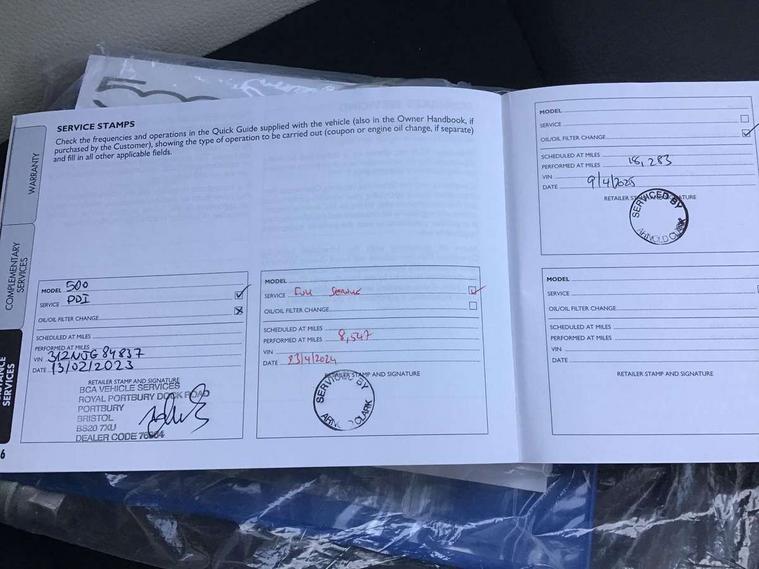 500
SERVICE STAMPS
Check the frequencies and operations in the Quick Guide supplied with the vehicle (also in the Owner Handbook, if
purchased by the Customer), showing the type of operation to be carried out (coupon or engine oil change, if separate)
and fill in all other applicable fields.
WARRANTY
COMPLEMENTARY
SERVICES
SERVICES
6
MODEL 500
SERVICE PDI
OIL/OIL FILTER CHANGE
SCHEDULED AT MILES
PERFORMED AT MILES
VIN 312NJG84837
DATE 13/02/2023
RETAILER STAMP AND SIGNATURE
BCA VEHICLE SERVICES
ROYAL PORTBURY DOCK ROAD
PORTBURY
BRISTOL
BS20 7XU
DEALER CODE
MODEL
SERVICE Full Service
OIL/OIL FILTER CHANGE
SCHEDULED AT MILES
PERFORMED AT MILES 8,547
VIN
DATE 23/4/2024
RETAILER STAMP AND SIGNATURE
SERVICED BY
ARNOLD CLARK
MODEL
SERVICE
OIL/OIL FILTER CHANGE
SCHEDULED AT MILES
PERFORMED AT MILES 18,283
VIN
DATE 9/4/2025
RETAILER STAMP AND SIGNATURE
SERVICED BY
ARNOLD CLARK
MODEL
SERVICE
OIL/OIL FILTER CHANGE
SCHEDULED AT MILES
PERFORMED AT MILES
VIN
DATE
RETAILER STAMP AND SIGNATURE